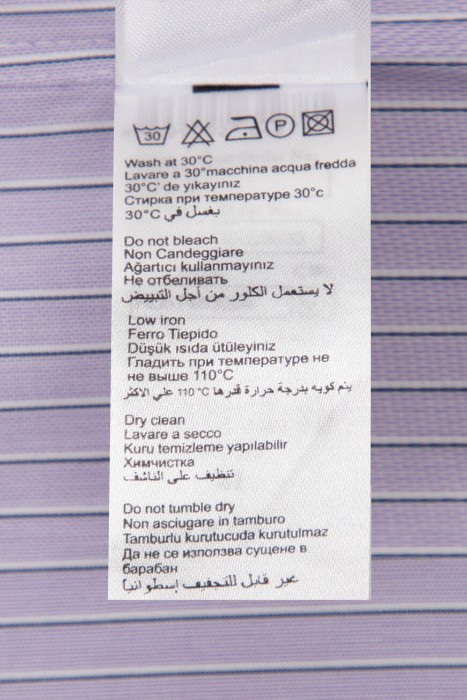 30 P
Wash at 30°C
Lavare a 30°macchina acqua fredda
30°C' de yıkayınız
Стирка при температуре 30°c
يغسل في 30°C
Do not bleach
Non Candeggiare
Ağartıcı kullanmayınız
Не отбеливать
لا يستعمل الكلور من أجل التبييض
Low iron
Ferro Tiepido
Düşük ısıda ütüleyiniz
Гладить при температуре не
не выше 110°C
يتم كويه بدرجة حرارة قدرها 110°C على الأكثر
Dry clean
Lavare a secco
Kuru temizleme yapılabilir
Химчистка
تنظيف على الناشف
Do not tumble dry
Non asciugare in tamburo
Tamburlu kurutucuda kurutulmaz
Да не се използва сушене в
барабан
غير قابل للتجفيف إسطوانيا